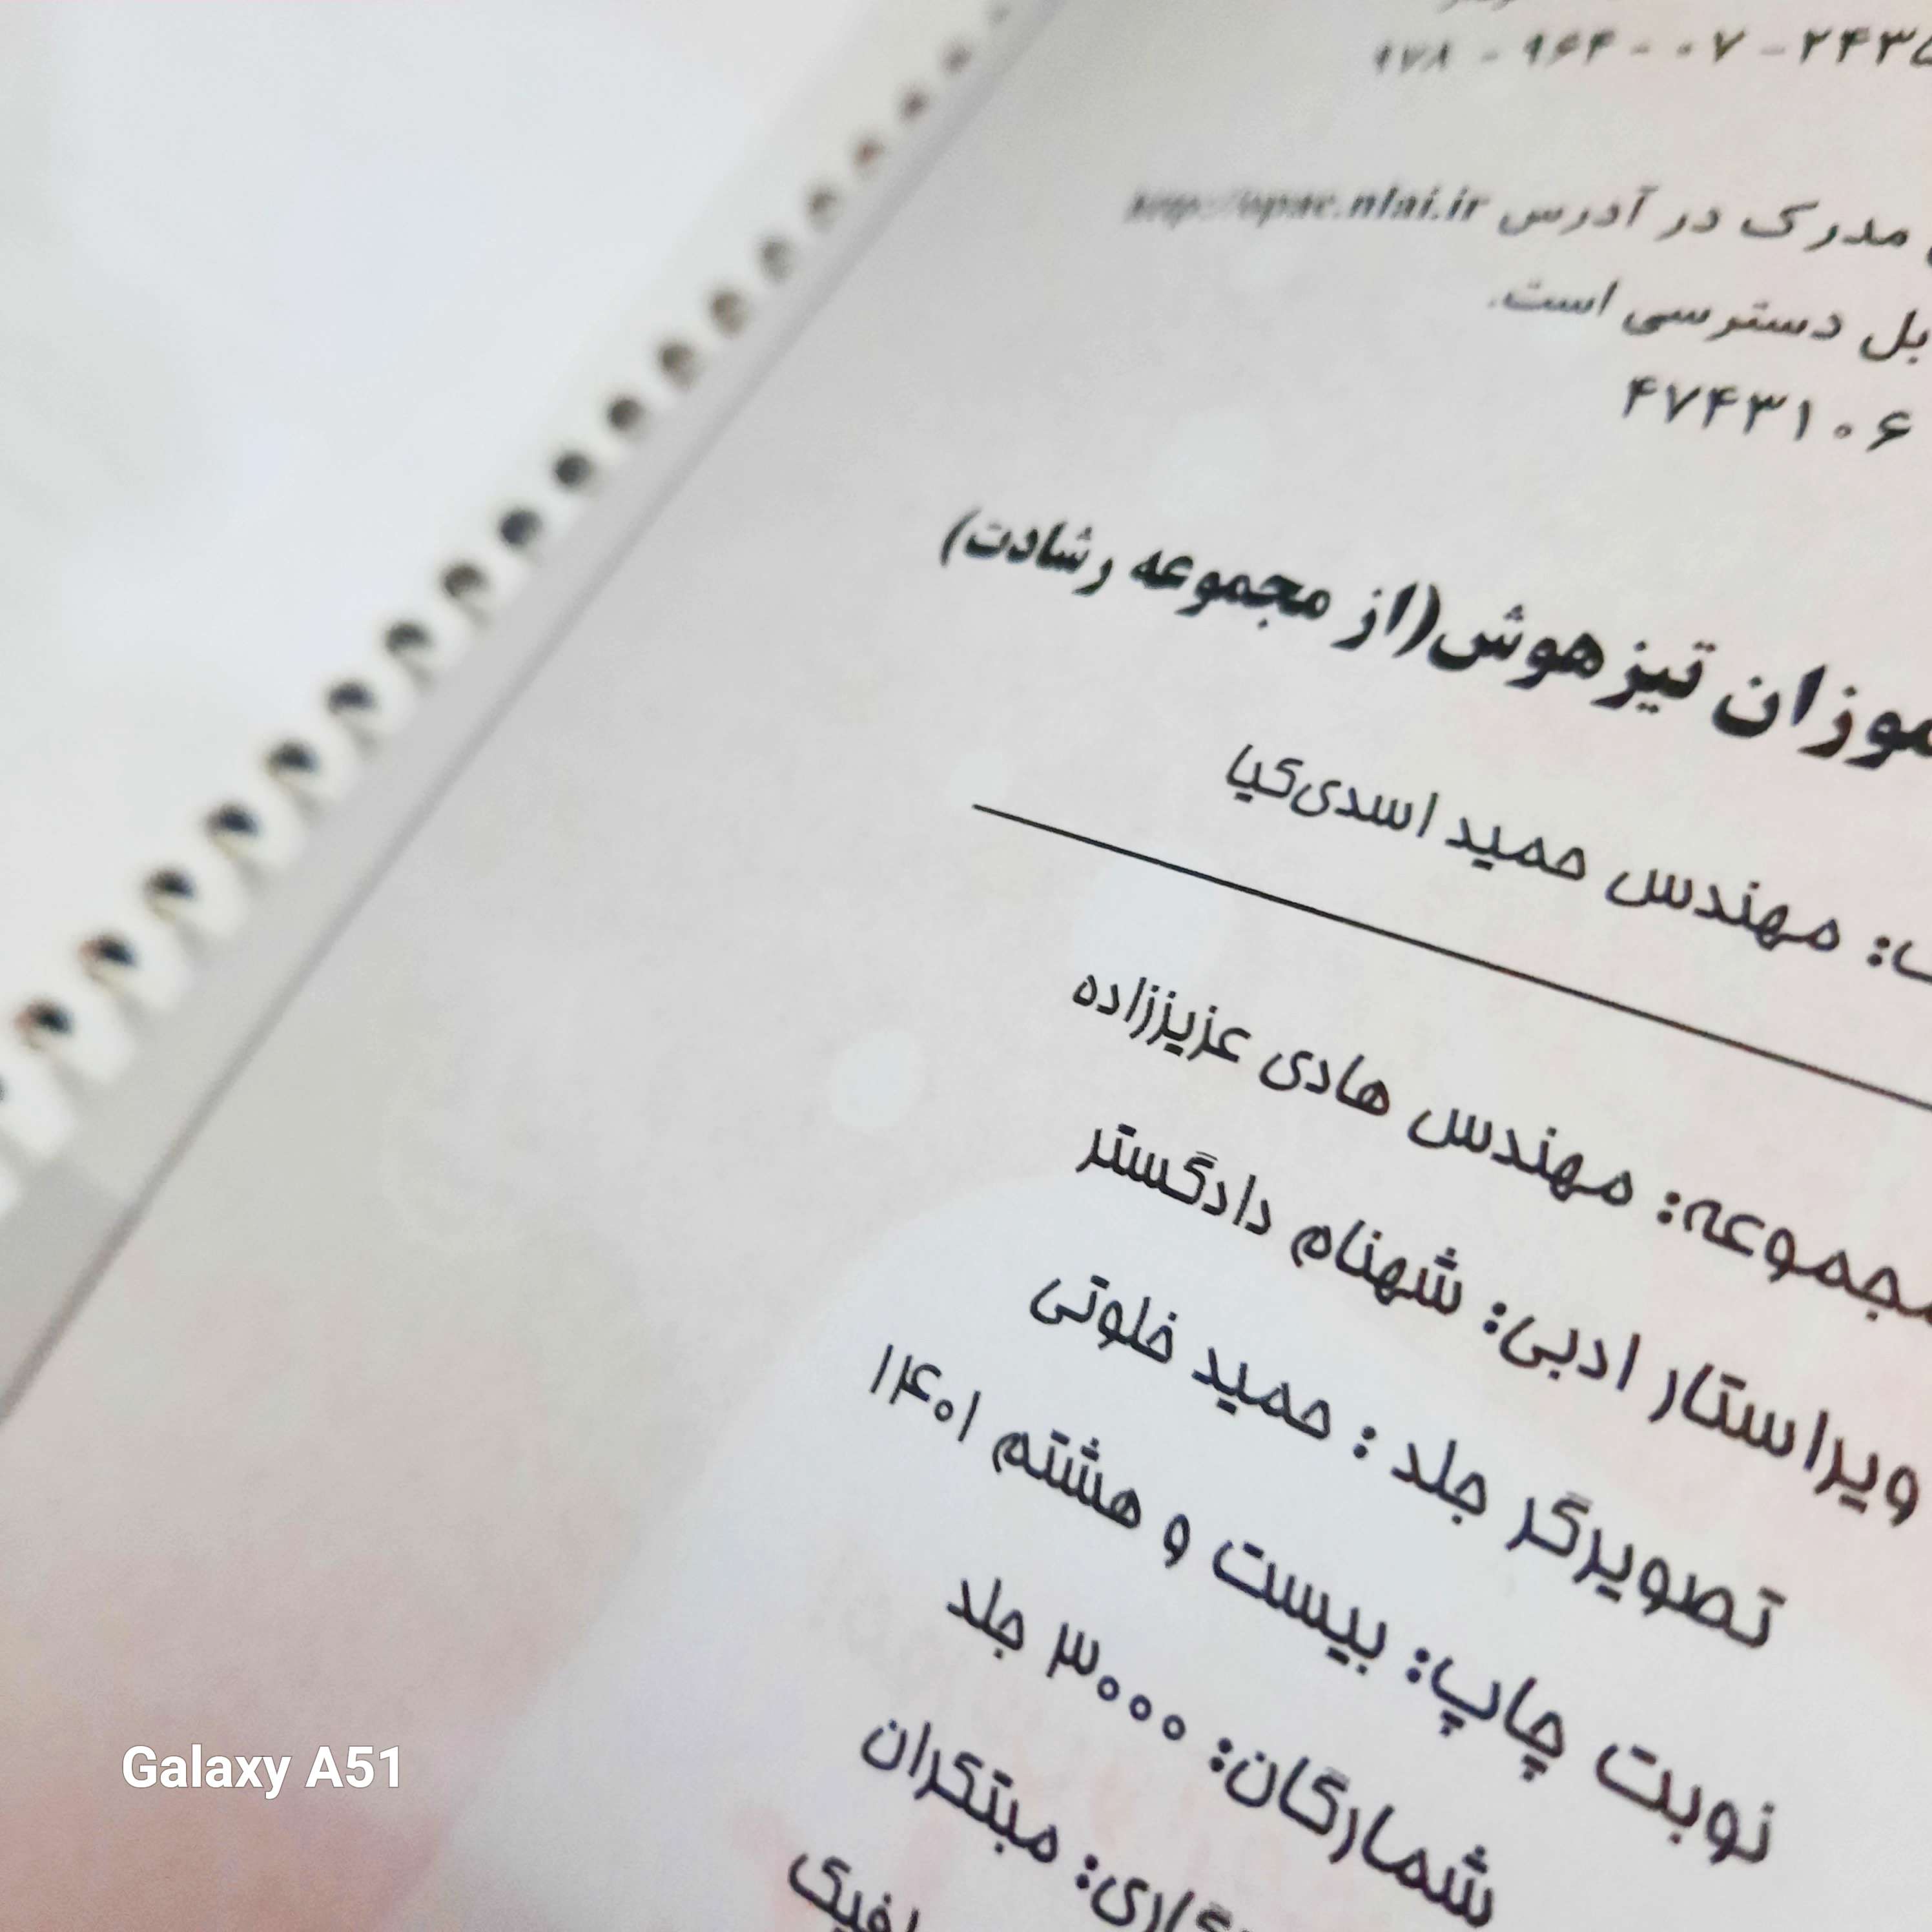 ۹۷۸ - ۹۶۴ - ۰۷ - ۲۴۳۵
مدرک در آدرس http://opac.nlai.ir
دسترسی است.
۴۷۴۳۱۰۶
تیزهوش(از مجموعه رشادت)
مهندس حمید اسدی‌کیا
مجموعه: مهندس هادی عزیززاده
ویراستار ادبی: شهنام دادگستر
تصویرگر جلد : حمید خلوتی
نوبت چاپ: بیست و هشتم ۱۴۰۱
شمارگان: ۳۰۰۰ جلد
مبتکران
Galaxy A51